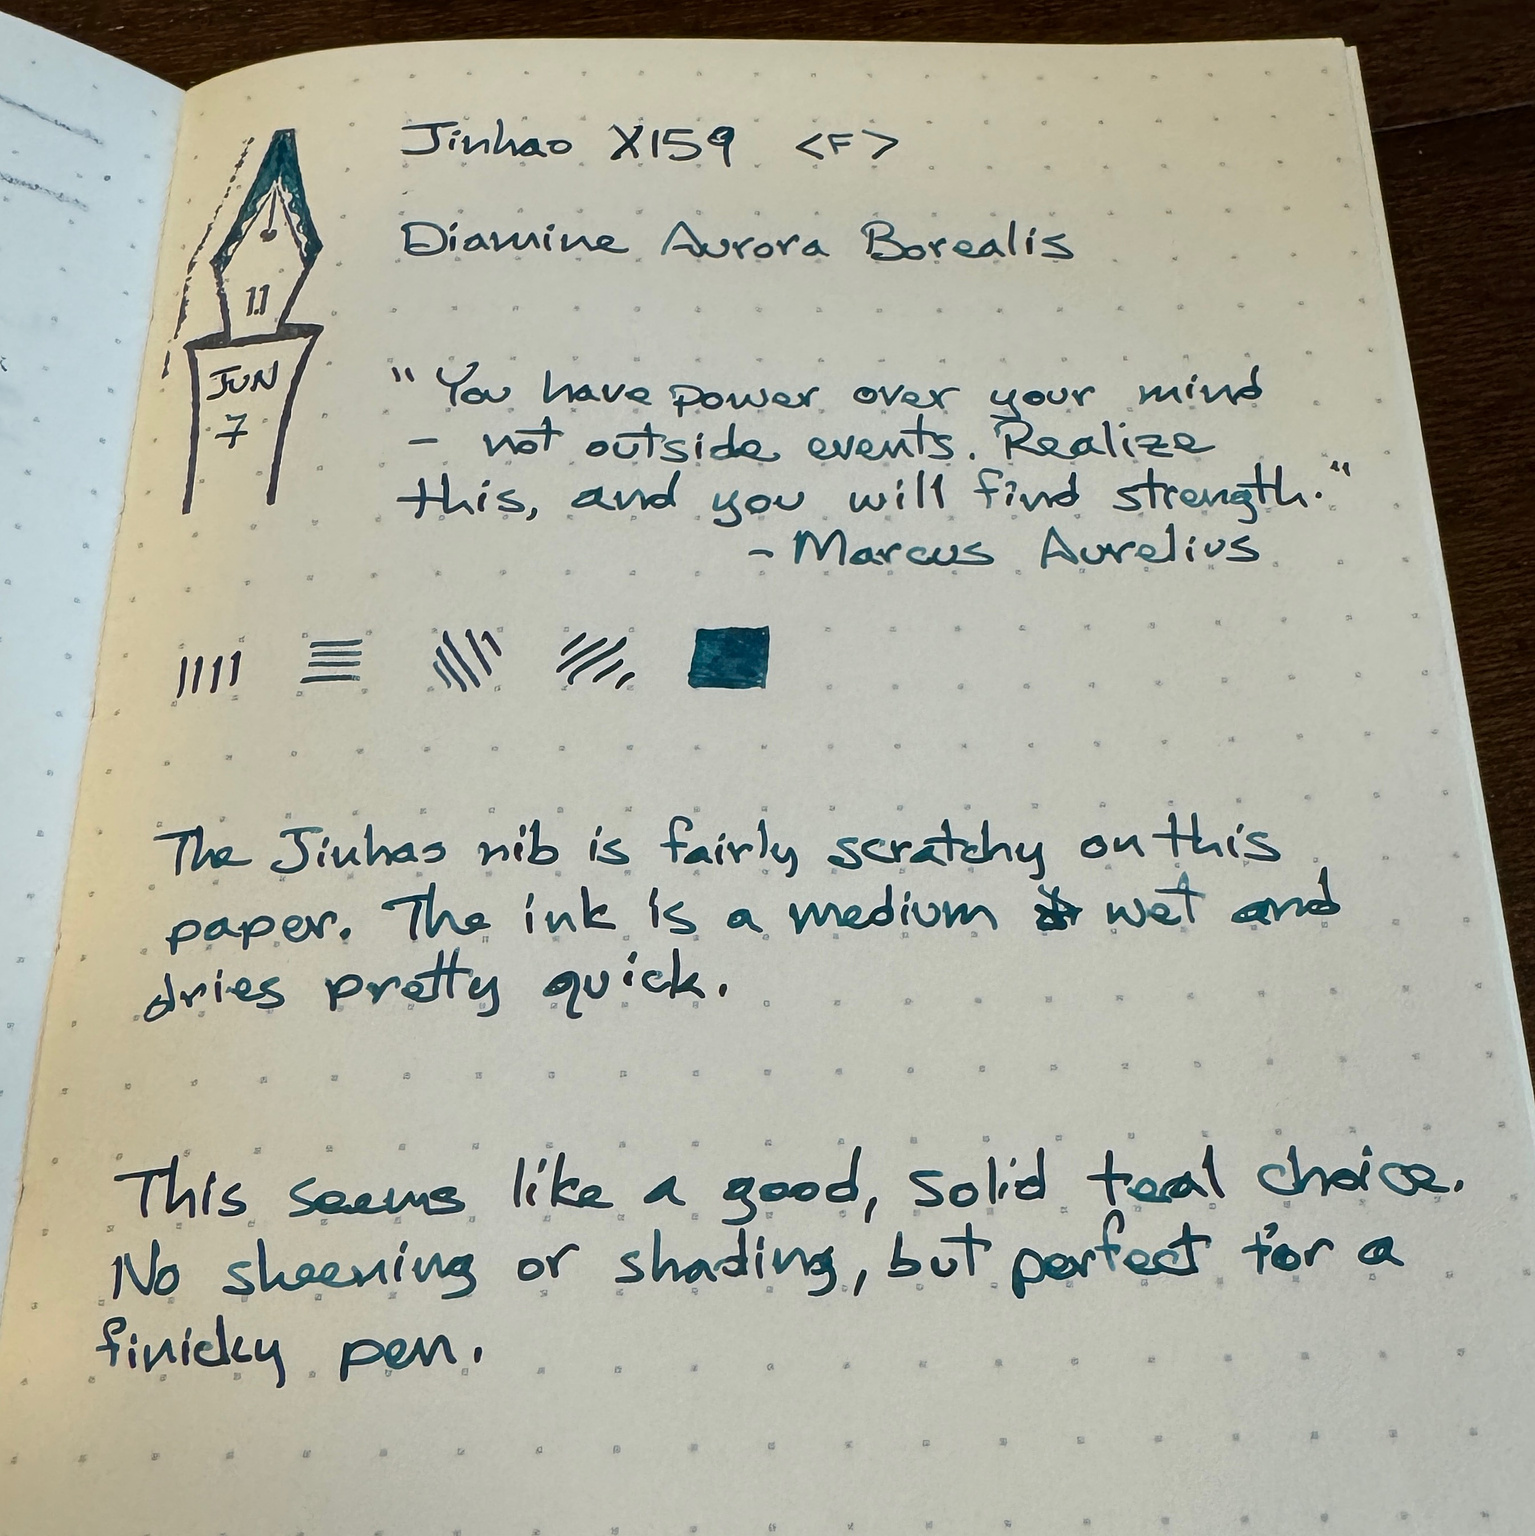 Jinhao X159 <F>
Diamine Aurora Borealis
1.1
JUN
7
"You have power over your mind
- not outside events. Realize
this, and you will find strength."
- Marcus Aurelius
The Jinhao nib is fairly scratchy on this
paper. The ink is a medium wet and
dries pretty quick.
This seems like a good, solid teal choice.
No sheening or shading, but perfect for a
finicky pen.